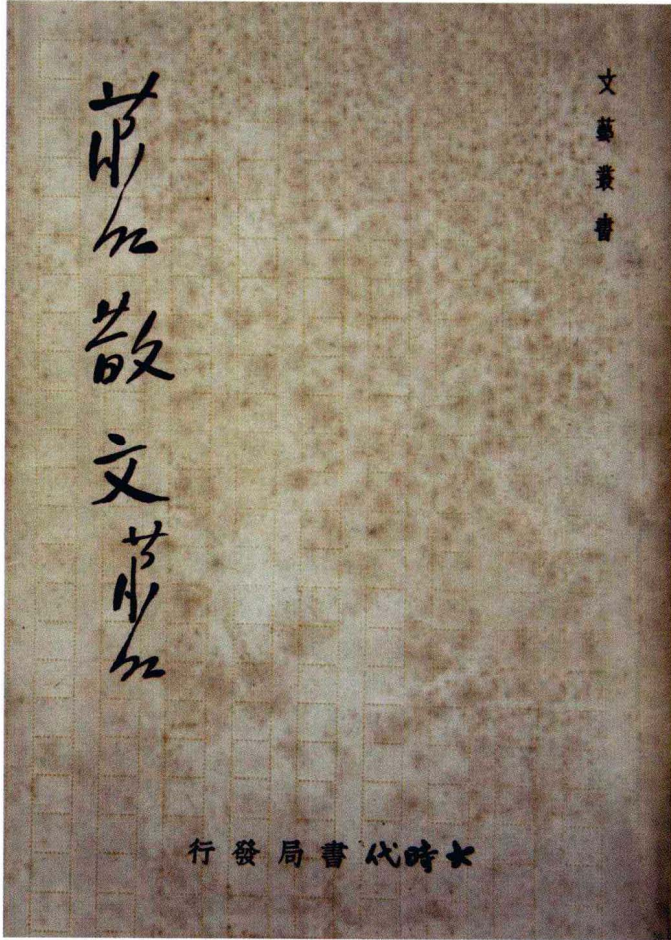 文藝叢書
蕭紅散文蕭紅
大時代書局發行